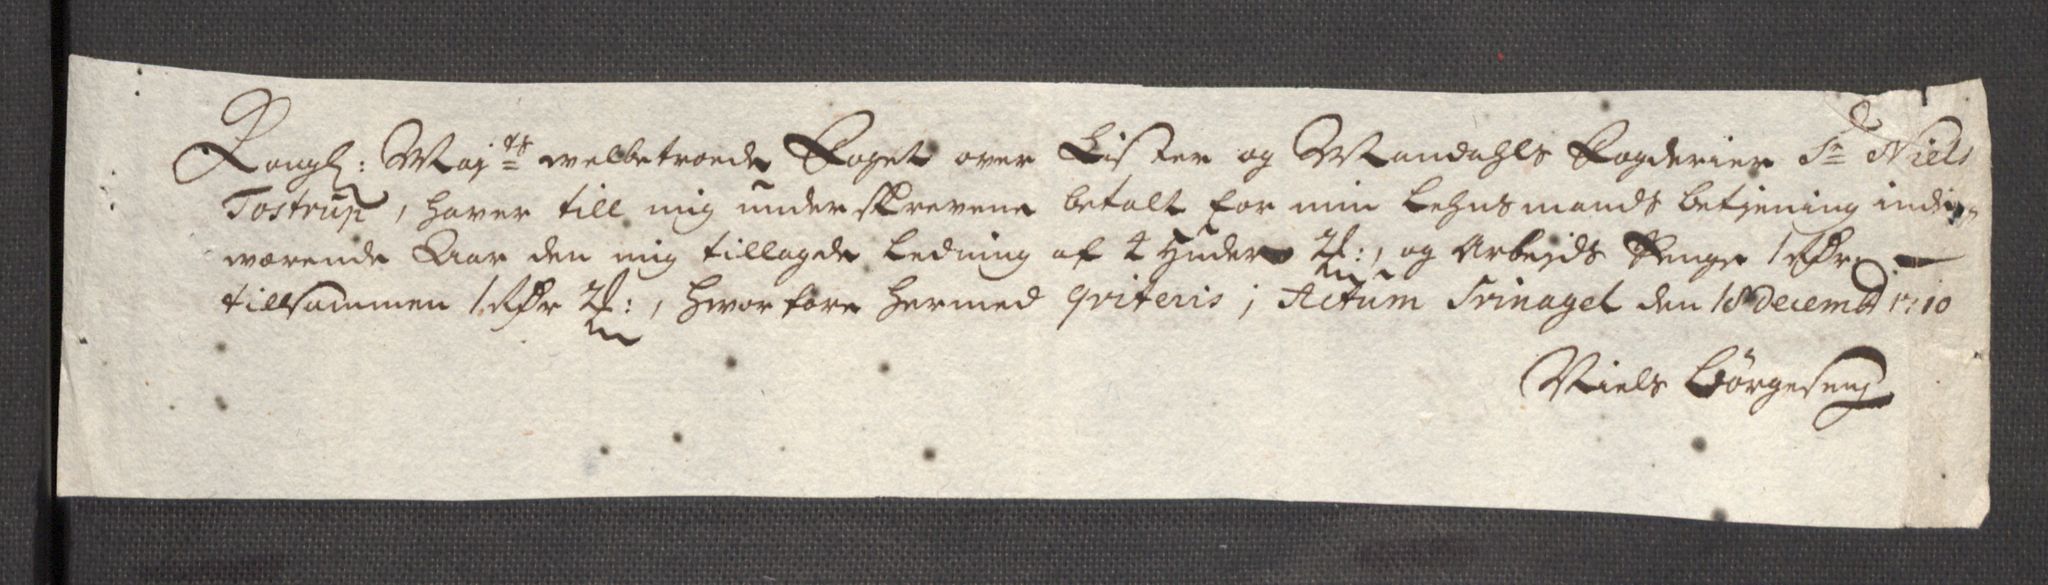 Kongl: Maj:ts welbetroede Foget over Lister og Mandahls Fogderier Sr Niels
Tostrup, haver till mig underskrevene betalt for min Lehnsmands betiening inde
værende Aar den mig tillagde Ledning af 2 Huder 2 og Arbejds Penge 1
tillsammen 1 2 hvorfore hermed qviteris; Actum Svinagel den 18 Decembr 1710
Niels Börgesen